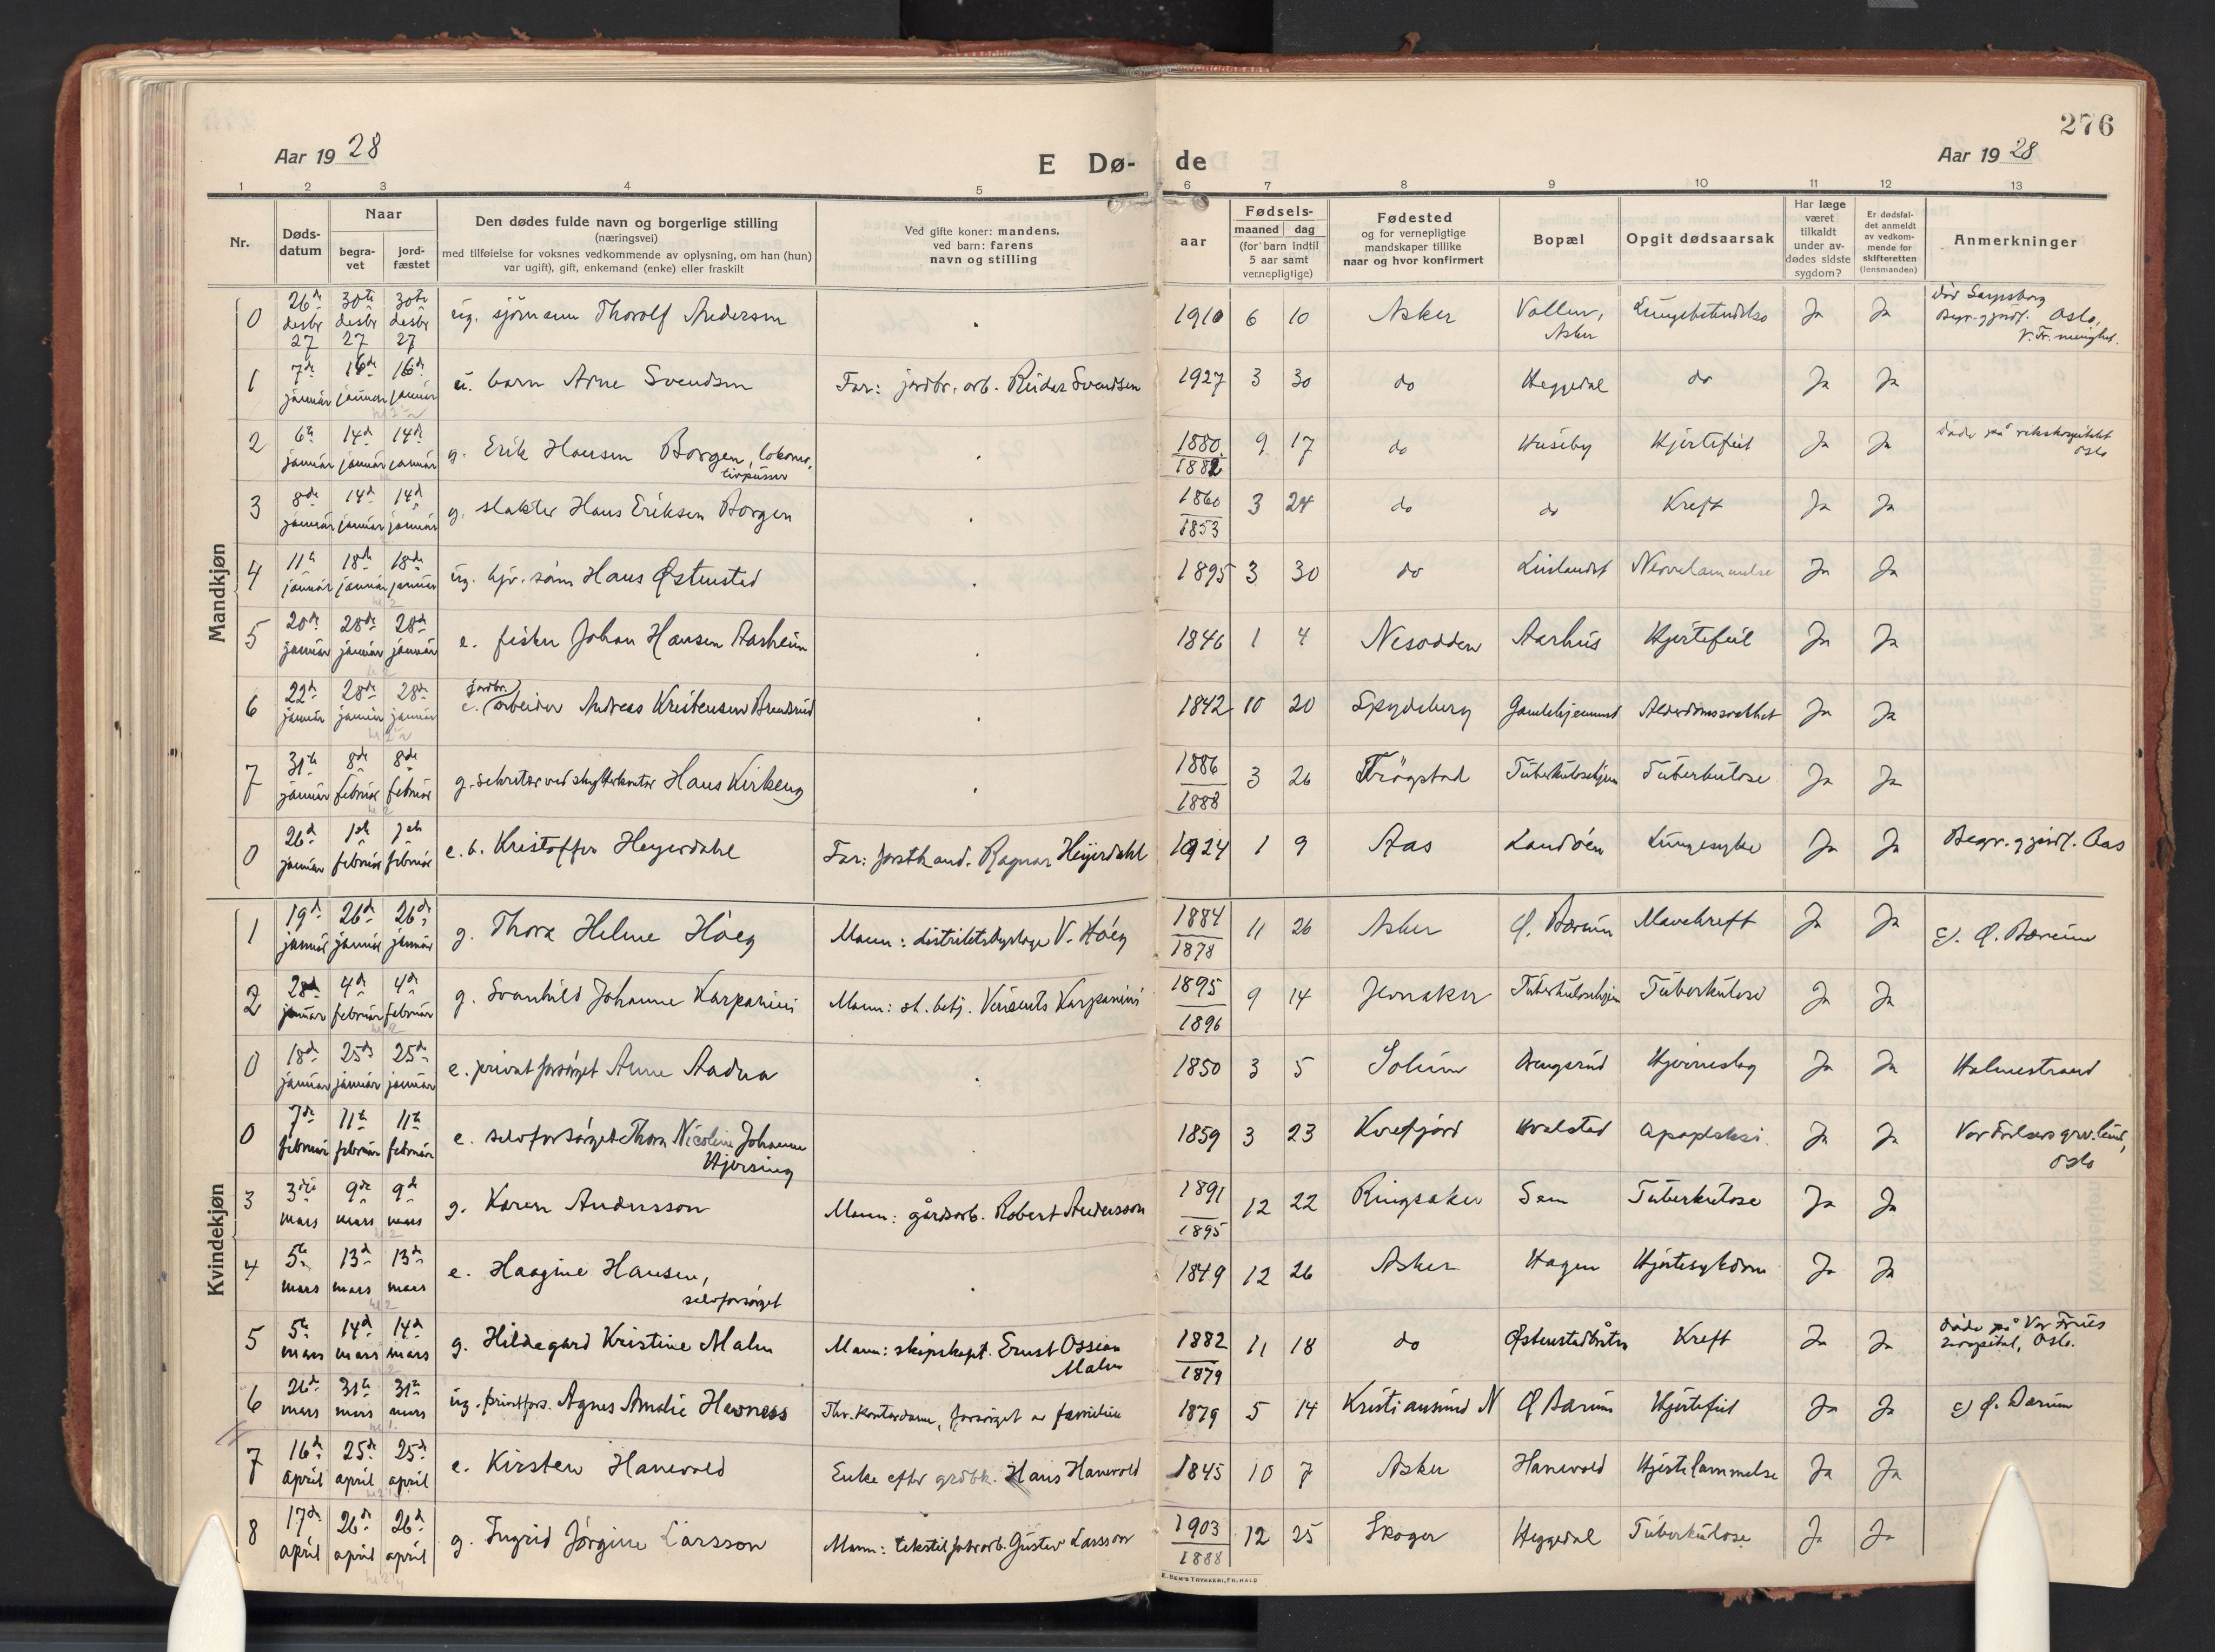 276
Aar 1928
E Dø- de
Aar 1928
1 2 3 4 5 6 7 8 9 10 11 12 13
Nr.
Døds-
datum
Naar
begra-
vet
jord-
fæstet
Den dødes fulde navn og borgerlige stilling
(næringsvei)
med tilføielse for voksnes vedkommende av oplysning, om han (hun)
var ugift), gift, enkemand (enke) eller fraskilt
Ved gifte koner: mandens,
ved barn: farens
navn og stilling
Fødsels-
aar
maaned dag
(for barn indtil
5 aar samt
vernepligtige)
Fødested
og for vernepligtige
mandskaper tillike
naar og hvor konfirmert
Bopæl
Opgit dødsaarsak
Har læge
været
tilkaldt
under av-
dødes sidste
sygdom?
Er dødsfal-
det anmeldt
av vedkom-
mende for
skifteretten
(lensmanden)
Anmerkninger
Mandkjøn
0 26de desbr 27 30te desbr 27 30te desbr 27 ug. sjömann Thorolf Andersen 1910 6 10 Asker Vollen, Asker Lungebetendelse Ja Ja død Sarpsborg Begr. g jordf. Oslo, V. Fr. menighet.
1 7de januar 16de januar 16de januar u. barn Arne Svendsen Far: jordbr. arb. Reidar Svendsen 1927 3 30 do Heggedal do Ja Ja
2 6te januar 14de januar 14de januar g. Erik Hansen Borgen, lokomotivpusser 1880 1882 9 17 do Huseby Hjertefeil Ja Ja døde på rikshospitalet Oslo
3 8de januar 14de januar 14de januar g. slakter Hans Eriksen Borgen 1860 1853 3 24 do do Kreft Ja Ja
4 11te januar 18de januar 18de januar ug. Hans Østensted 1895 3 30 do Nervelammelse Ja Ja
5 20de januar 28de januar 28de januar e. fisker Johan Hansen Aasheim 1846 1 4 Nesodden Aarhus Hjertefeil Ja Ja
6 22de januar 28de januar 28de januar e. jordbr. arbeider Andreas Kristensen Brendsrud 1842 10 20 Spydeberg Gamlehjemmet Alderdomssvakhet Ja Ja
7 31te januar 8de februar 8de februar g. sekretær ved Hans Kirkeng 1886 1888 3 26 Trögstad Tuberkulosehjem Tuberkulose Ja Ja
0 26de januar 1ste februar 1ste februar e. b. Kristoffer Heyerdahl Far: forstkand. Ragnar Heyerdahl 1924 1 9 Aas Landöen Lungesyke Ja Ja Begr. g jordf. Aas
Kvindekjøn
1 19de januar 26de januar 26de januar g. Thora Helene Höeg Mann: distriktslege V. Höeg 1884 1878 11 26 Asker Ø. Bærum Mavekreft Ja Ja Ø. Bærum
2 28de januar 4de februar 4de februar g. Svanhild Johanne Karpanini Mann: st. betj. Karpanini 1895 1896 9 14 Jevnaker Tuberkulosehjem Tuberkulose Ja Ja
0 18de januar 25de januar 25de januar e. privat forsörget Anne Aadna 1850 3 5 Solum Bergsrud Hjerneslag Ja Ja Holmestrand
0 7de februar 11te februar 11te februar e. selvforsörget Thora Nicoline Johanne Hjorsing 1859 3 23 Kvæfjord Hvalstad apopleksi. Ja Ja Vor Frelsers gravlund, Oslo
3 3die mars 9de mars 9de mars g. Karen Andersson Mann: gårdsarb. Robert Andersson 1891 1895 12 22 Ringsaker Sem Tuberkulose Ja Ja
4 5te mars 13de mars 13de mars e. Haagine Hansen, selvforsörget 1849 12 26 Asker Hagen Hjertesykdom Ja Ja
5 5te mars 14de mars 14de mars g. Hildegard Kristine Malm Mann: skipskapt. Ernst Ossian Malm 1882 1879 11 18 do Kreft Ja Ja døde på Vor Frues hospital, Oslo.
6 26de mars 31te mars 31te mars ug. privatfors. Agnes Amalie Hevness Fhv. kontordame, forsörget av familien 1879 5 14 Kristiansund N Ø Bærum Hjertefeil Ja Ja Ø. Bærum
7 16de april 25de april 25de april e. Kirsten Hanevold Enke efter grdbr. Hans Hanevold 1845 10 7 Asker Hanevold Hjertelammelse Ja Ja
8 17de april 26de april 26de april g. Ingrid Jörgine Larsson Mann: tekstilfabrarb. Gustav Larsson 1903 1888 12 25 Skoger Heggedal Tuberkulose Ja Ja
E. SEM'S TRYKKERI, FR. HALD